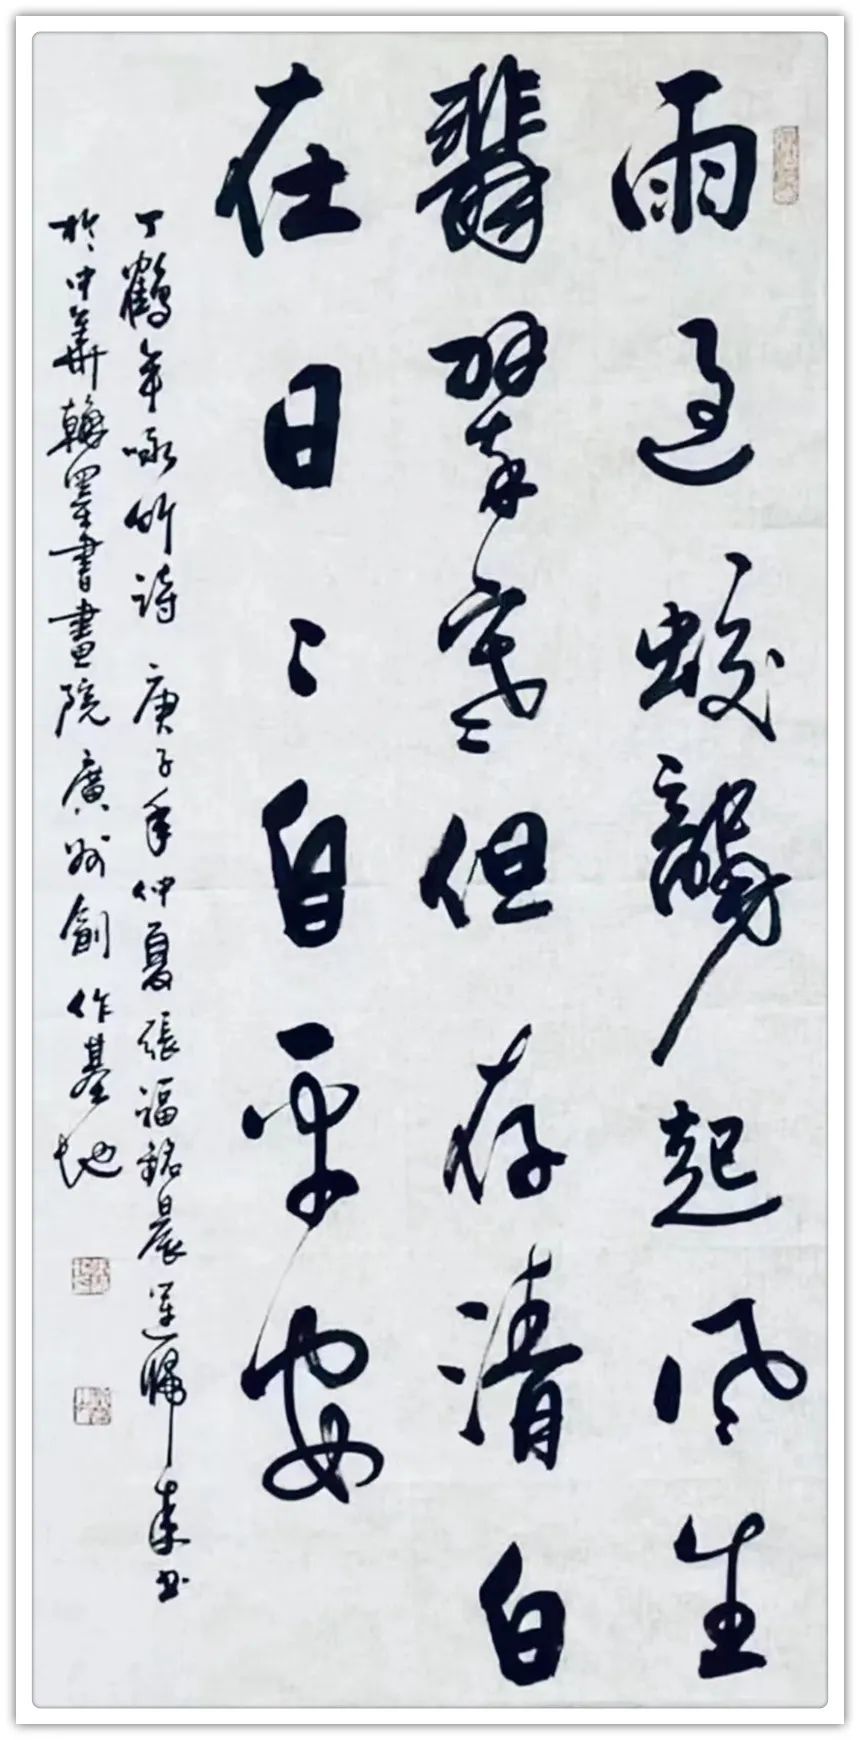 雨过蛟龍起风生
翡翠寒但存清白
在日〻自平安
丁鶴年咏竹詩 庚子年仲夏張福銘晨運歸来书
於中華翰墨書畫院廣州創作基地